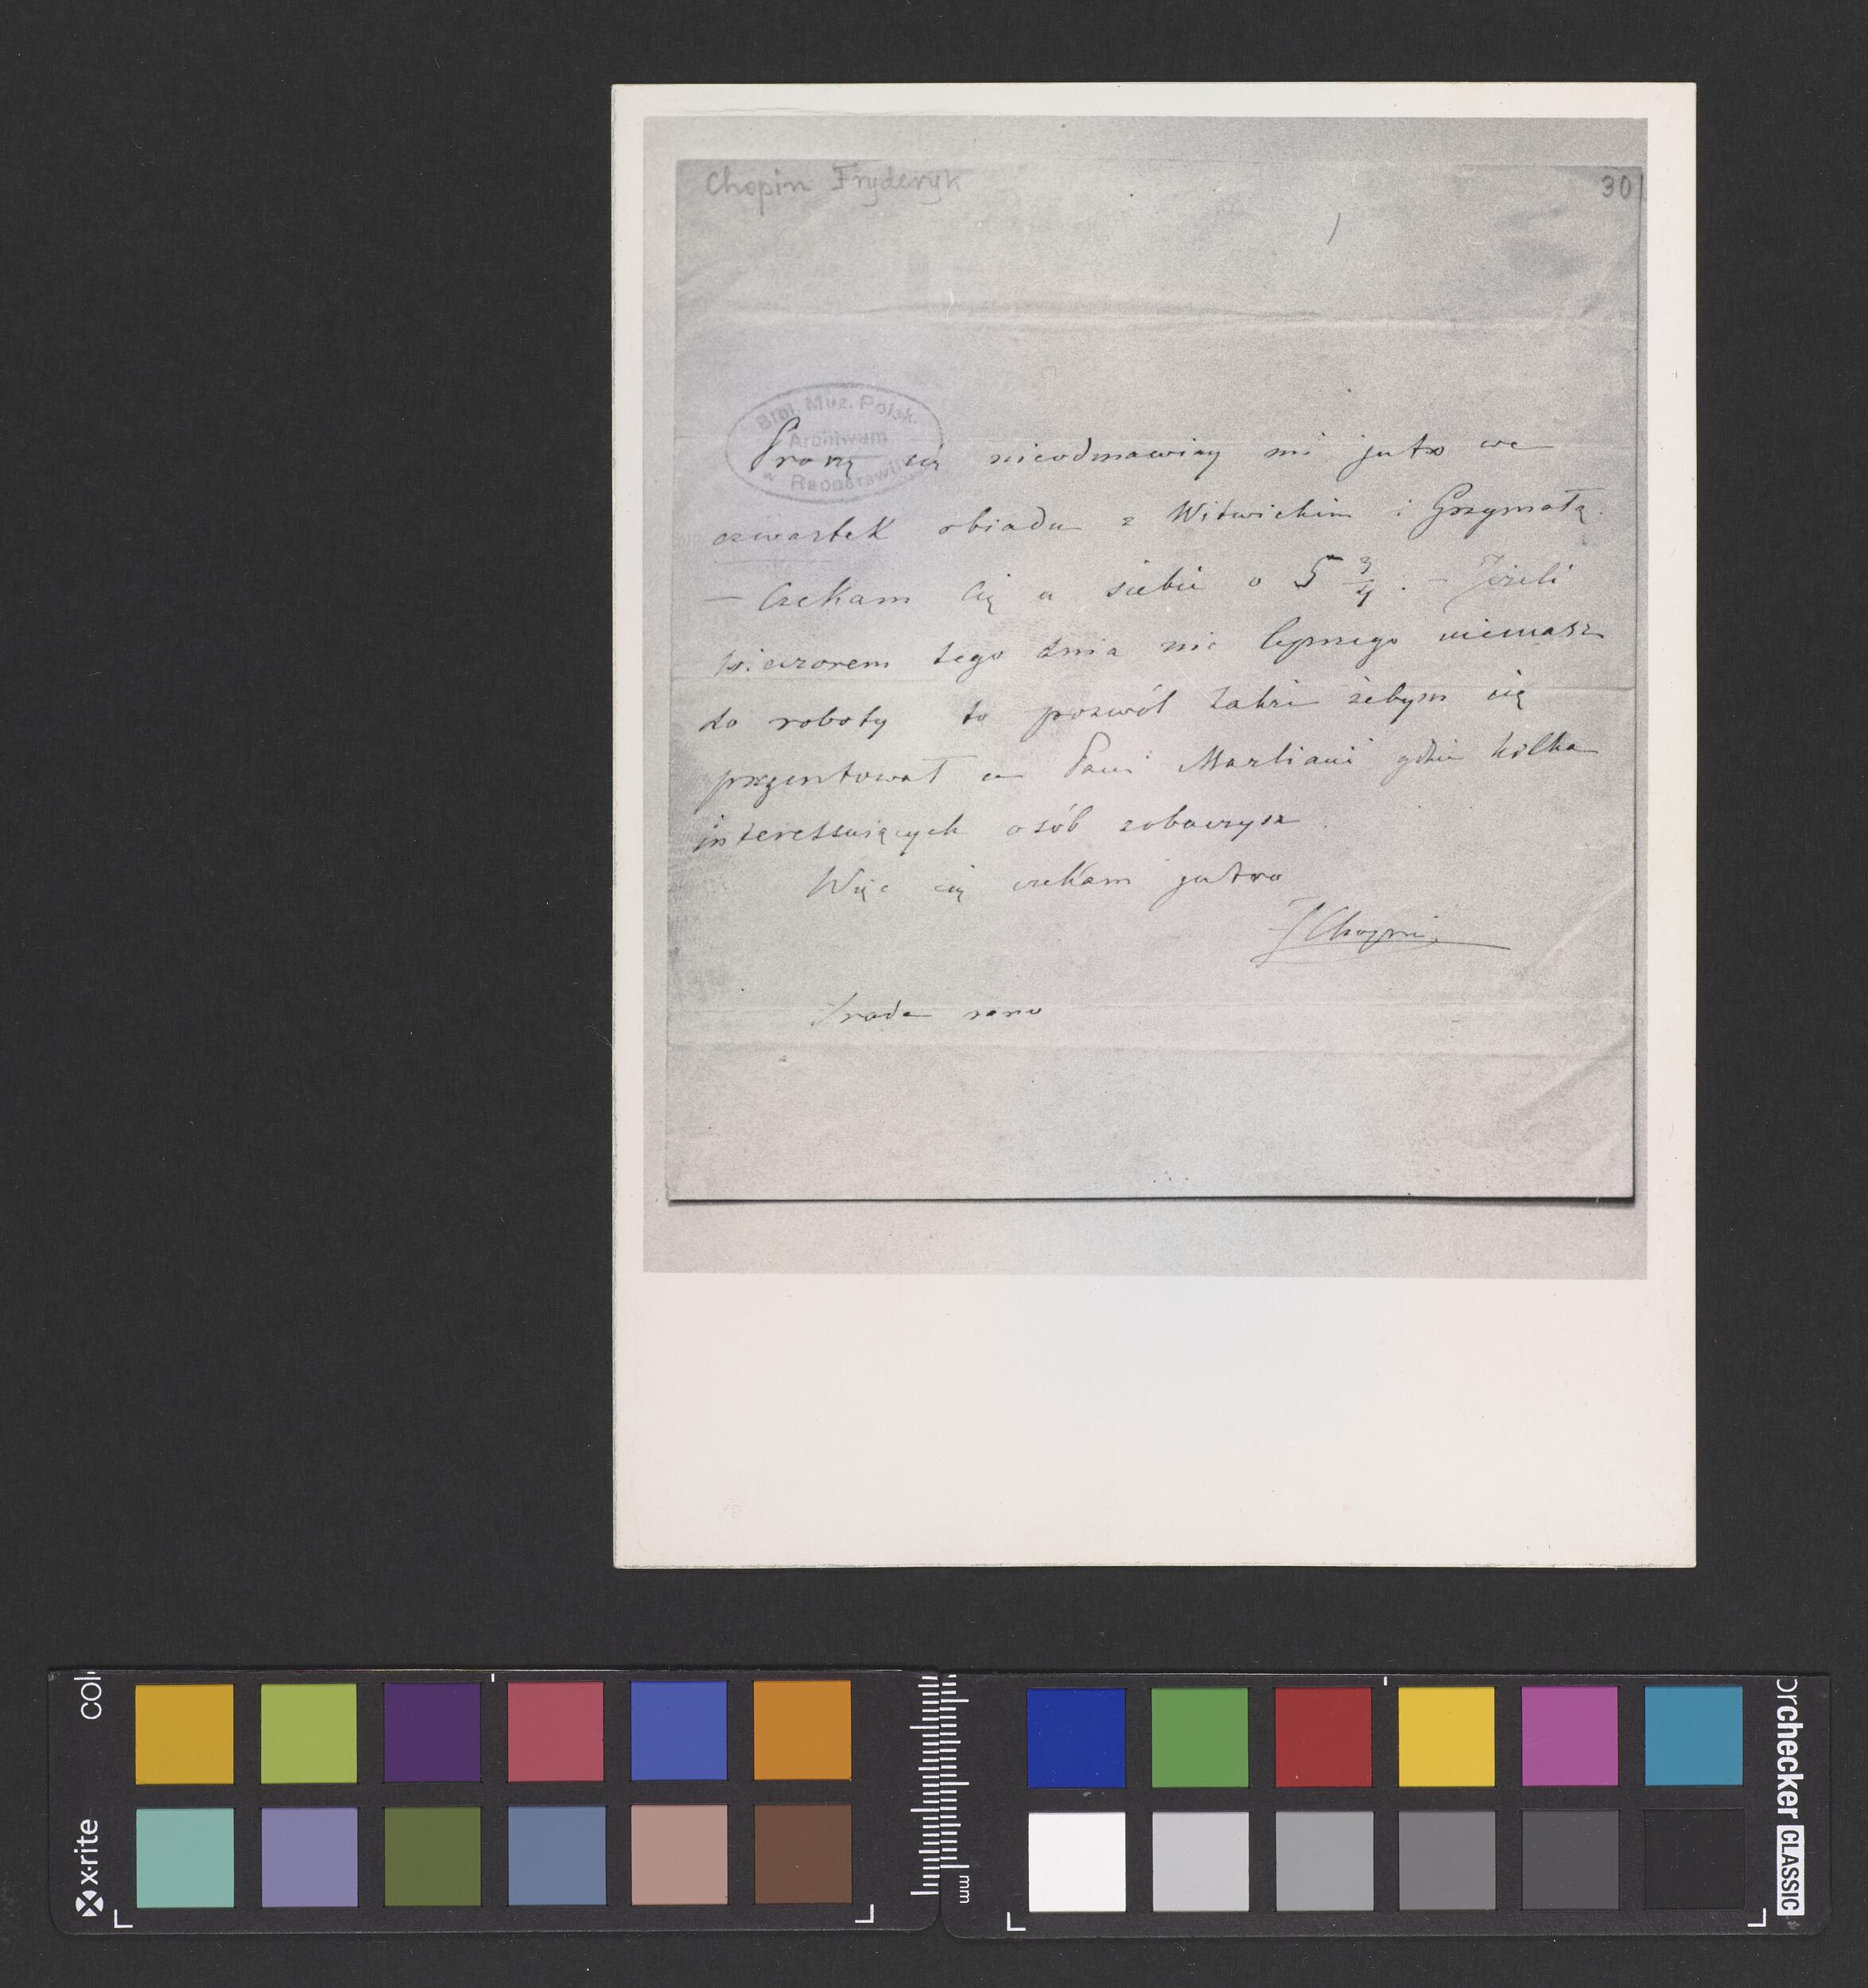 Chopin Fryderyk
30
Bibl. Muz. Polsk.
Archiwum
w Rapperswilu
Proszę cię nieodmawiay mi jutro we
czwartek obiadu z Witwickim i Grzymałą.
– Czekam cię u siebie o 5 3/4. – Jeżeli
wieczorem tego dnia nic lepszego niemasz
do roboty to pozwól także żebym cię
prezentował u Pani Marliani gdzie kilka
interessuiących osób zobaczysz.
Więc cię czekam jutro
FChopin
Sroda rano
x·rite
mm
colorchecker CLASSIC